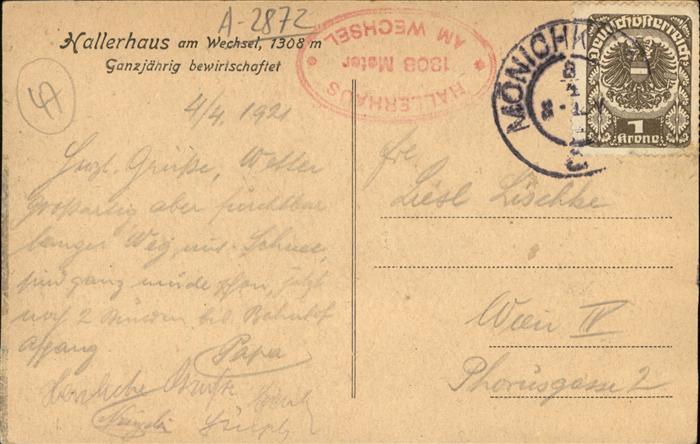 A-2872
Hallerhaus am Wechsel, 1308 m
Ganzjährig bewirtschaftet
HALLERHAUS
1308 Meter
AM WECHSEL
MÖNICHK
Deutschösterreich
1
Krone
4/4. 1921
Herzl. Grüße, Wetter
großartig aber furchtbar
langer Weg, mit Schnee,
sind ganz müde schon, jetzt
noch 2 Stunden bis Bahnhof
Aspang
Papa
Herzliche Grüße
Frl.
Liesl Lischke
Wien IV
Phorusgasse 2